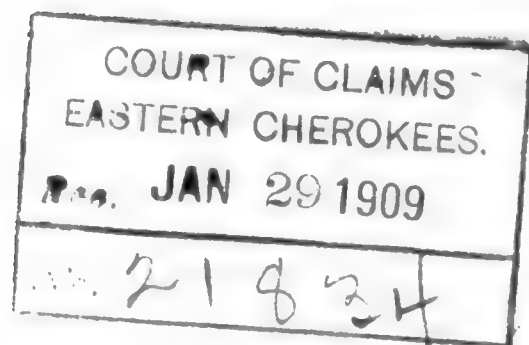 COURT OF CLAIMS
EASTERN CHEROKEES.
Rec. JAN 29 1909
No. 21824